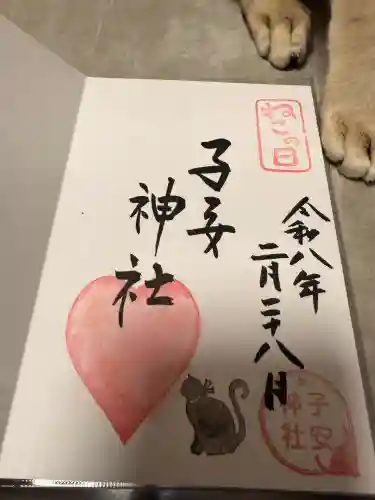 ねこの日
令和八年
二月二十八日
子安
神社
子安
神社